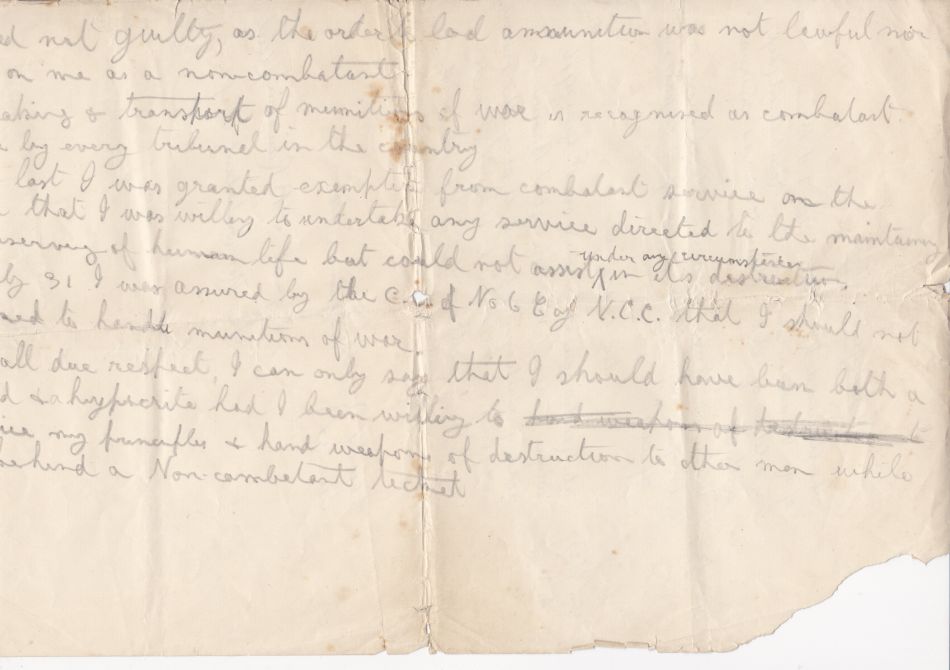 ed not guilty, as the order to load ammunition was not lawful nor
on me as a non-combatant.
aking & transport of munitions of war is recognised as combatant
by every tribunal in the country
last I was granted exemption from combatant service on the
that I was willing to undertake any service directed to the maintaing
nserving of human life but could not assist under any circumstances in its destruction.
ly 31 I was assured by the C. of No 6 Coy N.C.C. that I should not
ned to handle munitions of war.
all due respect, I can only say that I should have been both a
d & a hypocrite had I been willing to hand weapons of destruction t
ice my principles & hand weapons of destruction to other men while
behind a Non-combatant ticket